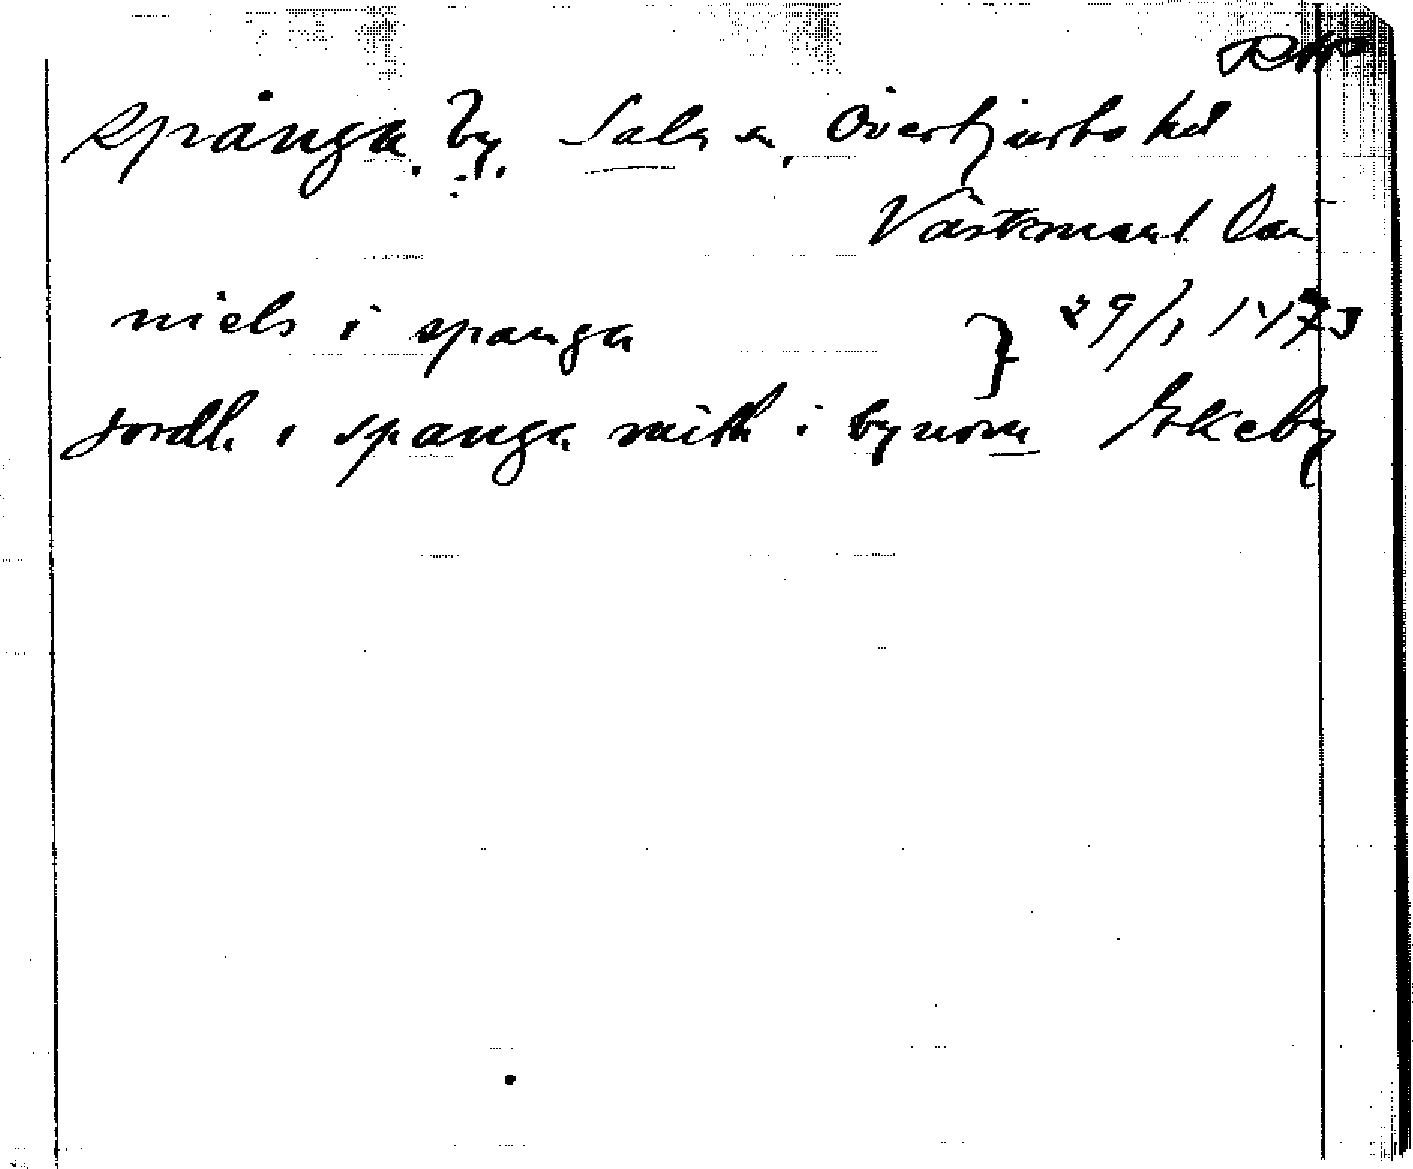 Spånga, by, Sala sn, Övertjurbo hd
Västmanl län
niels i spanga } 29/1 1473
jordh i spanga
mith i bynom Ekeby